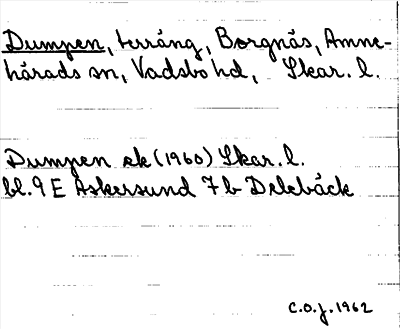 Dumpen, terräng, Borgnäs, Amne-
härads sn, Vadsbo hd, Skar. l.
Dumpen ek (1960) Skar. l.
bl. 9 E Askersund 7 b Delebäck
C.O.J. 1962